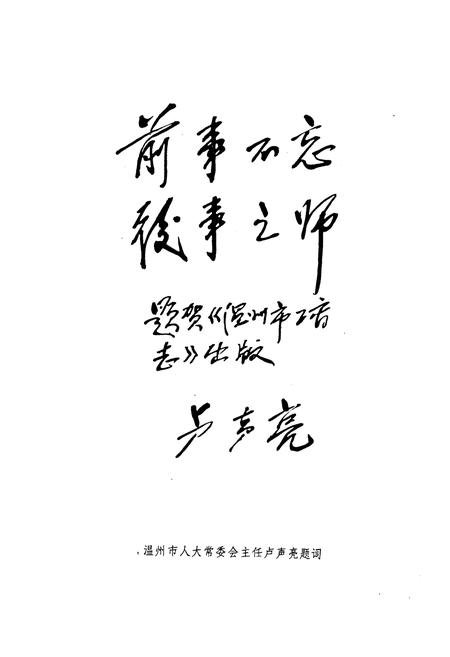 前事不忘
後事之师
题贺《温州市工商
志》出版
卢声亮
温州市人大常委会主任卢声亮题词